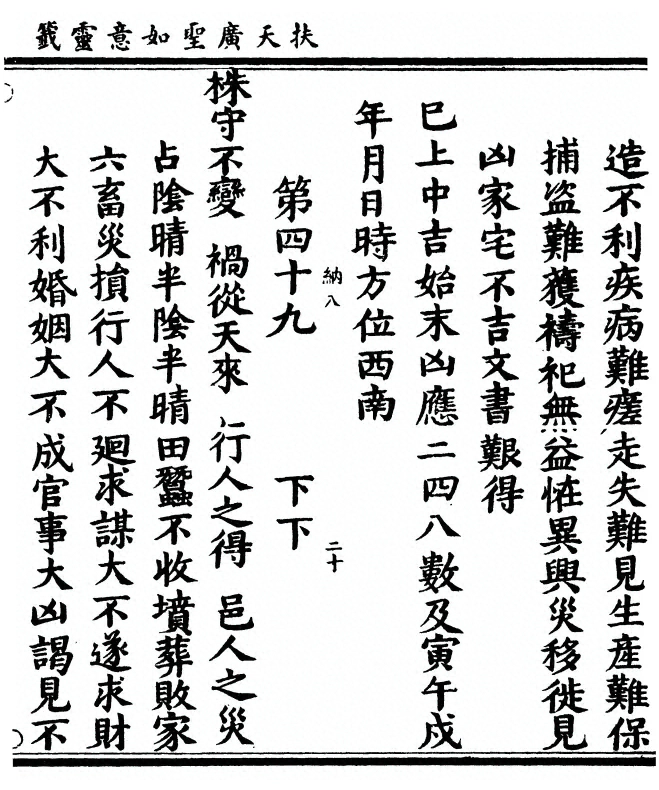 扶天廣聖如意靈籤
造不利疾病難瘥走失難見生產難保
捕盜難獲禱祀無益恠異興災移徙見
凶家宅不吉文書艱得
巳上中吉始末凶應二四八數及寅午戍
年月日時方位西南
納八 二十
第四十九 下下
株守不變 禍從天來 行人之得 邑人之災
占陰晴半陰半晴田蠶不收墳葬敗家
六畜災損行人不廻求謀大不遂求財
大不利婚姻大不成官事大凶謁見不